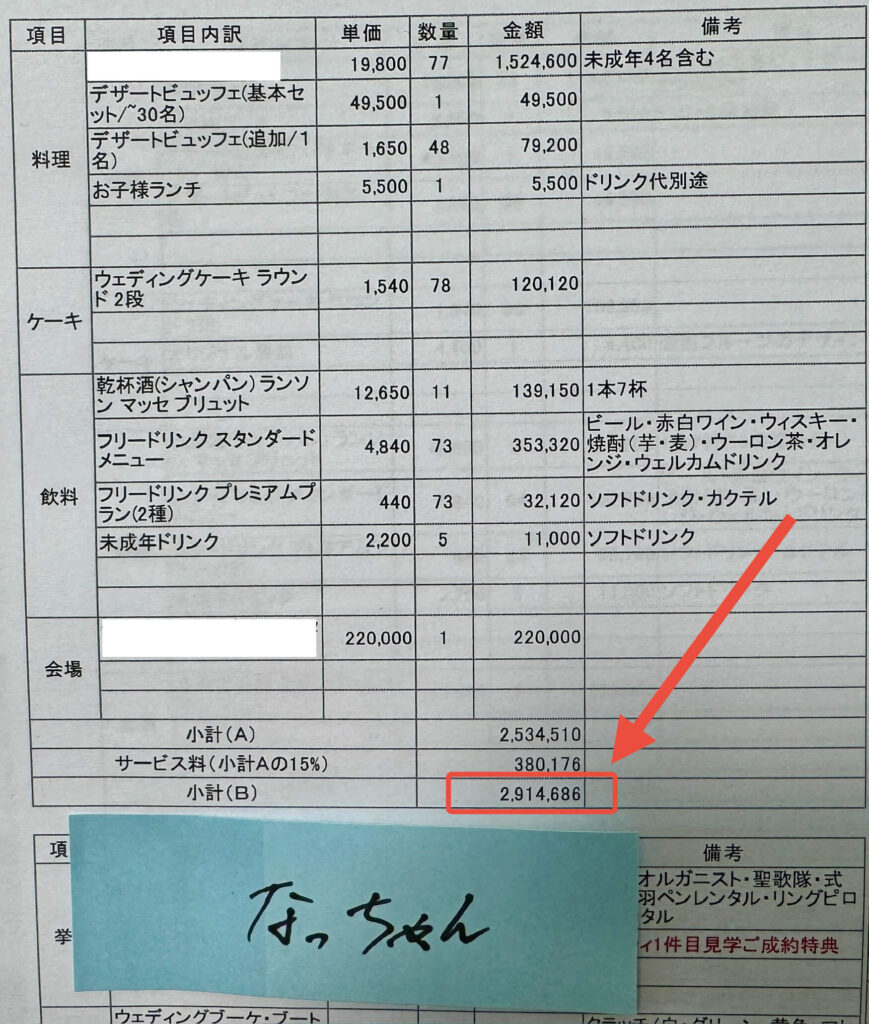 項目 項目内訳 単価 数量 金額 備考
19,800 77 1,524,600 未成年4名含む
デザートビュッフェ(基本セ
ット/~30名) 49,500 1 49,500
デザートビュッフェ(追加/1
名) 1,650 48 79,200
料理
お子様ランチ 5,500 1 5,500 ドリンク代別途
ウェディングケーキ ラウン
ド 2段 1,540 78 120,120
ケーキ
乾杯酒(シャンパン) ランソ
ン マッセ ブリュット 12,650 11 139,150 1本7杯
フリードリンク スタンダード
メニュー 4,840 73 353,320
ビール・赤白ワイン・ウィスキー・
焼酎(芋・麦)・ウーロン茶・オレ
ンジ・ウェルカムドリンク
飲料
フリードリンク プレミアムプ
ラン(2種) 440 73 32,120 ソフトドリンク・カクテル
未成年ドリンク 2,200 5 11,000 ソフトドリンク
220,000 1 220,000
会場
小計(A) 2,534,510
サービス料(小計Aの15%) 380,176
小計(B) 2,914,686
項 備考
なっちゃん
オルガニスト・聖歌隊・式
羽ペンレンタル・リングピロ
タル
挙
ィ1件目見学ご成約特典
ウェディングブーケ・ブート